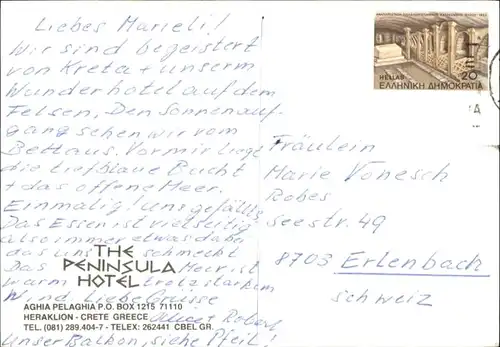 Liebes Marieli!
Wir sind begeistert
von Kreta + unserm
Wunderhotel auf dem
Felsen, Den Sonnenauf-
gang sehen wir vom
Bett aus. Vor mir liegt
die tiefblaue Bucht
+ das offene Meer.
Einmalig! Uns gefällts
Das Essen ist vielseitig
also immer etwas dabei
das uns schmeckt
Das Meer ist
warm trotz starkem
Wind. Liebe Grüsse
Robert
Unser Balkon, siehe Pfeil!
THE
PENINSULA
HOTEL
AGHIA PELAGHIA P.O. BOX 1215 71110
HERAKLION - CRETE GREECE
TEL. (081) 289.404-7 - TELEX: 262441 CBEL GR.
HELLAS 20
ΕΛΛΗΝΙΚΗ ΔΗΜΟΚΡΑΤΙΑ
Fräulein
Marie Vonesch
Robes
seestr. 49
8703 Erlenbach
Schweiz